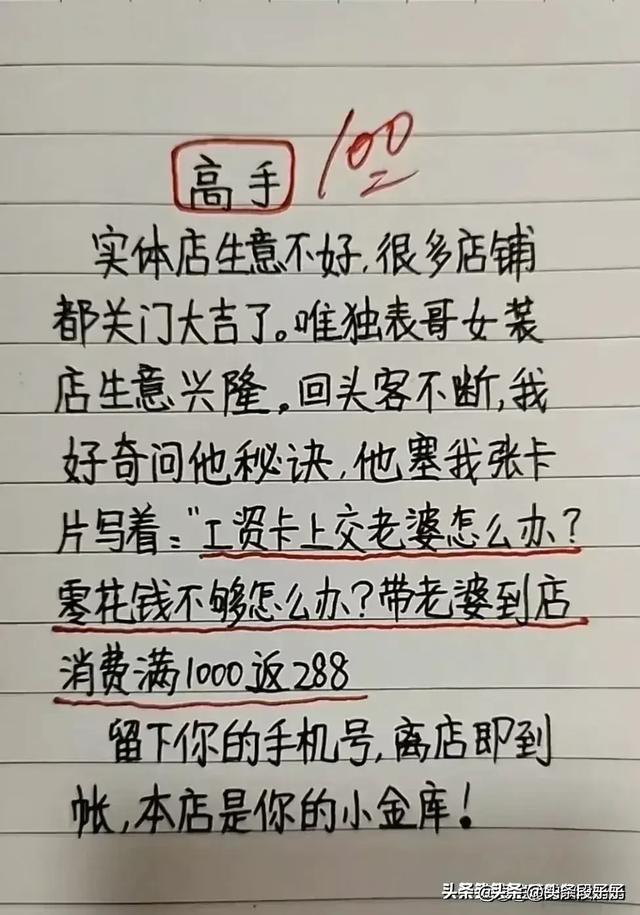 高手 100
实体店生意不好,很多店铺
都关门大吉了。唯独表哥女装
店生意兴隆。回头客不断,我
好奇问他秘诀,他塞我张卡
片写着:"工资卡上交老婆怎么办?
零花钱不够怎么办?带老婆到店
消费满1000返288
留下你的手机号,离店即到
帐,本店是你的小金库!